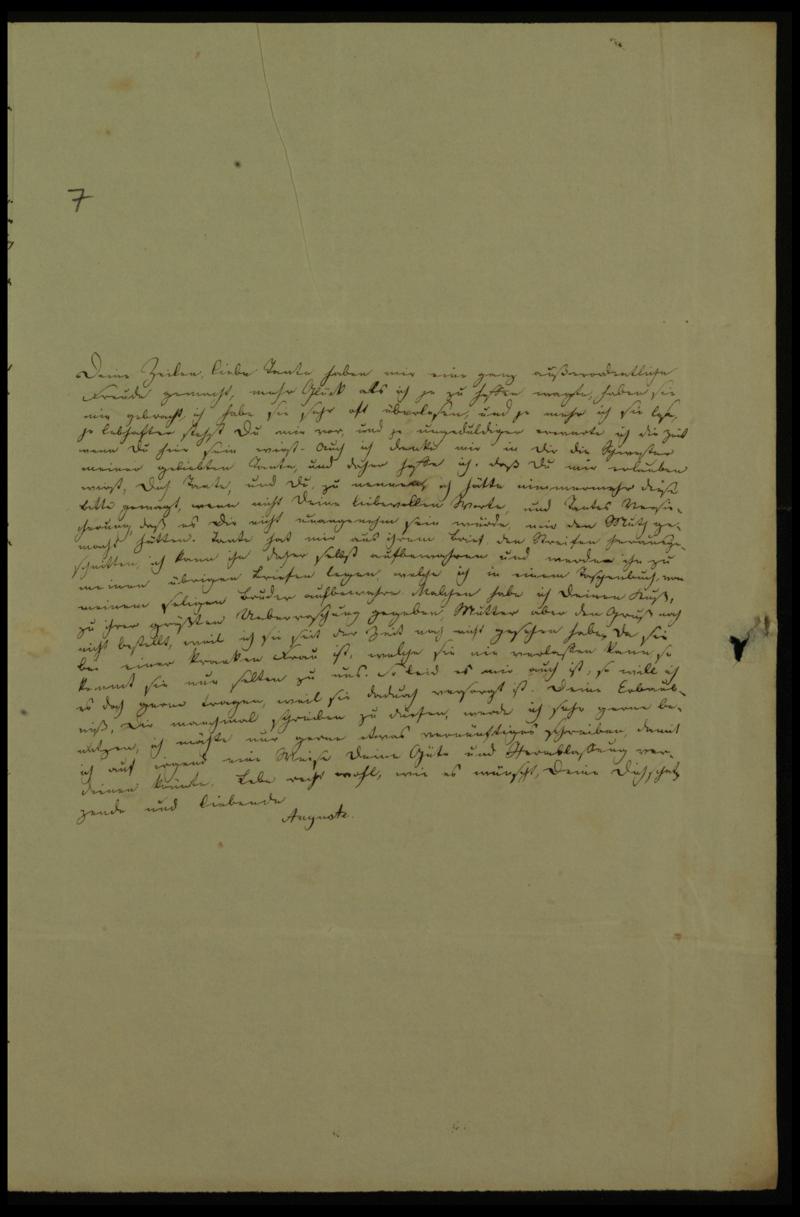 7
Deine Zeilen, liebe Tante haben mir eine ganz außerordentliche
Freude gemacht, mehr Glück als ich je zu hoffen wagte, haben sie
mir gebracht, ich habe sie sehr oft überlesen, und je mehr ich sie lese,
je lebhafter stehst Du mir vor, und je ungeduldiger erwarte ich die Zeit
wenn Du hier sein wirst. Auch ich denke mir in Dir die Schwester
meiner geliebten Tante, und daher hoffe ich, daß Du mir erlauben
wirst, Dich Tante, und Du, zu nennen, ich hätte nimmermehr diese
Bitte gewagt, wenn nicht Deine liebevollen Worte, und Tantes Versi-
cherung, daß es Dir nicht unangenehm sein würde, mir den Muth ge-
macht hätten. Tante hat mir aus ihrem Brief den Streifen herausge-
schnitten, ich kann ihn daher selbst aufbewahren und werde ihn zu
meinen übrigen Briefen legen, welche ich in einem Taschenbuch, von
meinem seligen Bruder aufbewahre. Malchen habe ich Deinen Kuß,
zu ihrer größten Ueberraschung gegeben, Mutter aber den Gruß noch
nicht bestellt, weil ich sie seit der Zeit noch nicht gesehen habe, da sie
bei einer kranken Frau ist, welche sie nie verlassen kann, so
kommt sie nur selten zu uns. So leid es mir auch ist, so will ich
es doch gerne tragen, weil sie dadurch versorgt ist. Deine Erlaub-
niß, Dir manchmal schreiben zu dürfen, werde ich sehr gerne be-
nutzen, ich möchte nur gerne etwas vernünftiges schreiben, damit
ich auf irgend eine Weise Deine Güte und Herablassung ver-
dienen könnte. Lebe recht wohl, wie es wünscht, Deine Dich schät-
zende und liebende
Auguste.